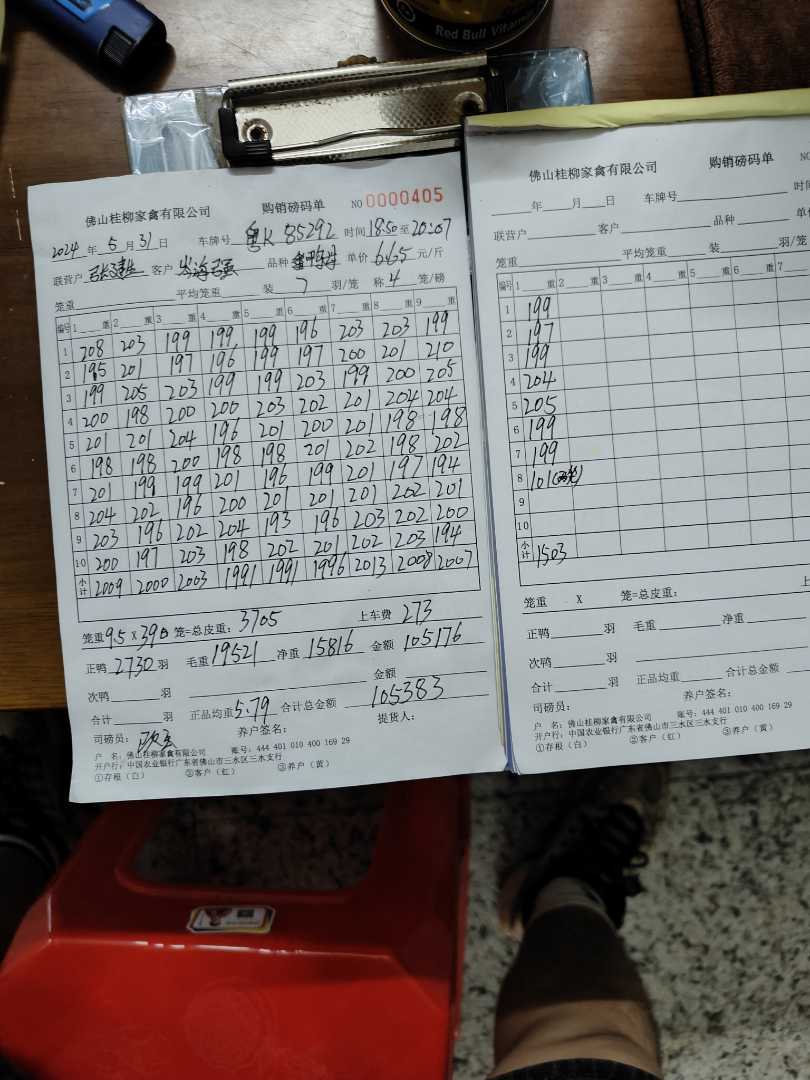 Red Bull Vitamin
佛山桂柳家禽有限公司 购销磅码单 NO 0000405
2024 年 5 月 31 日 车牌号 粤K 85292 时间 18:50 至 20:07
联营户 客户 品种 单价 6.65 元/斤
笼重 平均笼重 装 7 羽/笼 称 4 笼/磅
编号 1 重 2 重 3 重 4 重 5 重 6 重 7 重 8 重 9 重
1 208 203 199 199 199 196 203 203 199
2 195 201 197 196 199 197 200 201 210
3 199 205 203 199 199 203 199 200 205
4 200 198 200 200 203 202 201 204 204
5 201 201 204 196 201 200 201 198 198
6 198 198 200 198 198 201 202 198 202
7 201 199 199 201 196 199 201 197 194
8 204 202 196 200 201 201 201 202 201
9 203 196 202 204 193 196 203 202 200
10 200 197 203 198 202 201 202 203 194
小计 2009 2000 2003 1991 1991 1996 2013 2008 2007
笼重 9.5 X 390 笼=总皮重: 3705 上车费 273
正鸭 2730 羽 毛重 19521 净重 15816 金额 105176
次鸭 羽 金额
合计 羽 正品均重 5.79 合计总金额 105383
司磅员: 养户签名: 提货人:
户 名: 佛山桂柳家禽有限公司 账号: 444 401 010 400 169 29
开户行: 中国农业银行广东省佛山市三水区三水支行
①存根(白) ②客户(红) ③养户(黄)
佛山桂柳家禽有限公司 购销磅码单 NO
年 月 日 车牌号 时间
联营户 客户 品种 单价
笼重 平均笼重 装 羽/笼
编号 1 重 2 重 3 重 4 重 5 重 6 重 7
1 199
2 197
3 199
4 204
5 205
6 199
7 199
8 101
9
10
小计 1503
笼重 X 笼=总皮重: 上
正鸭 羽 毛重 净重
次鸭 羽
合计 羽 正品均重 合计总金额
司磅员: 养户签名:
户 名: 佛山桂柳家禽有限公司 账号: 444 401 010 400 169 29
开户行: 中国农业银行广东省佛山市三水区三水支行
①存根(白) ②客户(红) ③养户(黄)